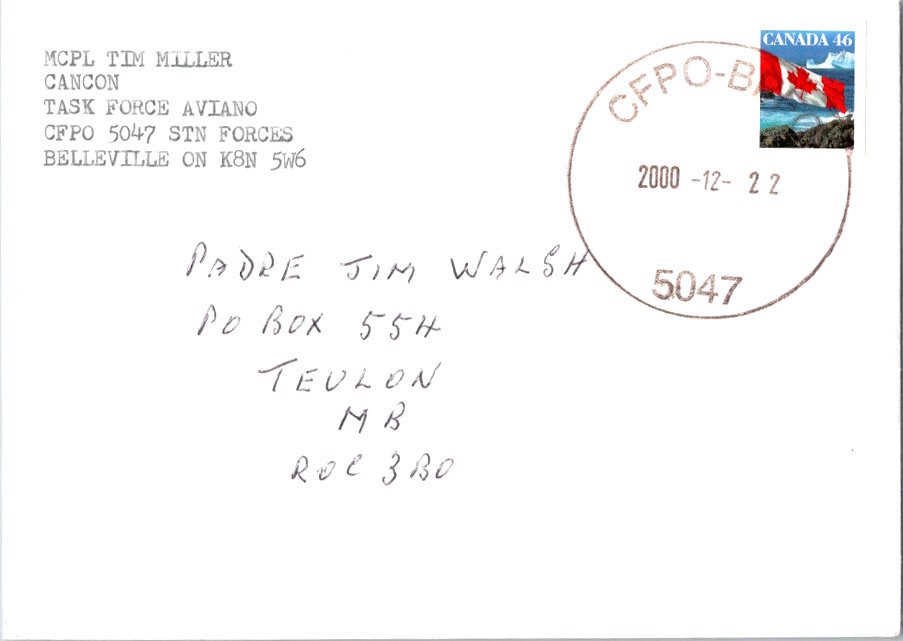 MCPL TIM MILLER
CANCON
TASK FORCE AVIANO
CFPO 5047 STN FORCES
BELLEVILLE ON K8N 5W6
CANADA 46
2000 -12- 22
5047
PADRE JIM WALSH
PO BOX 554
TEULON
MB
R0C 3B0